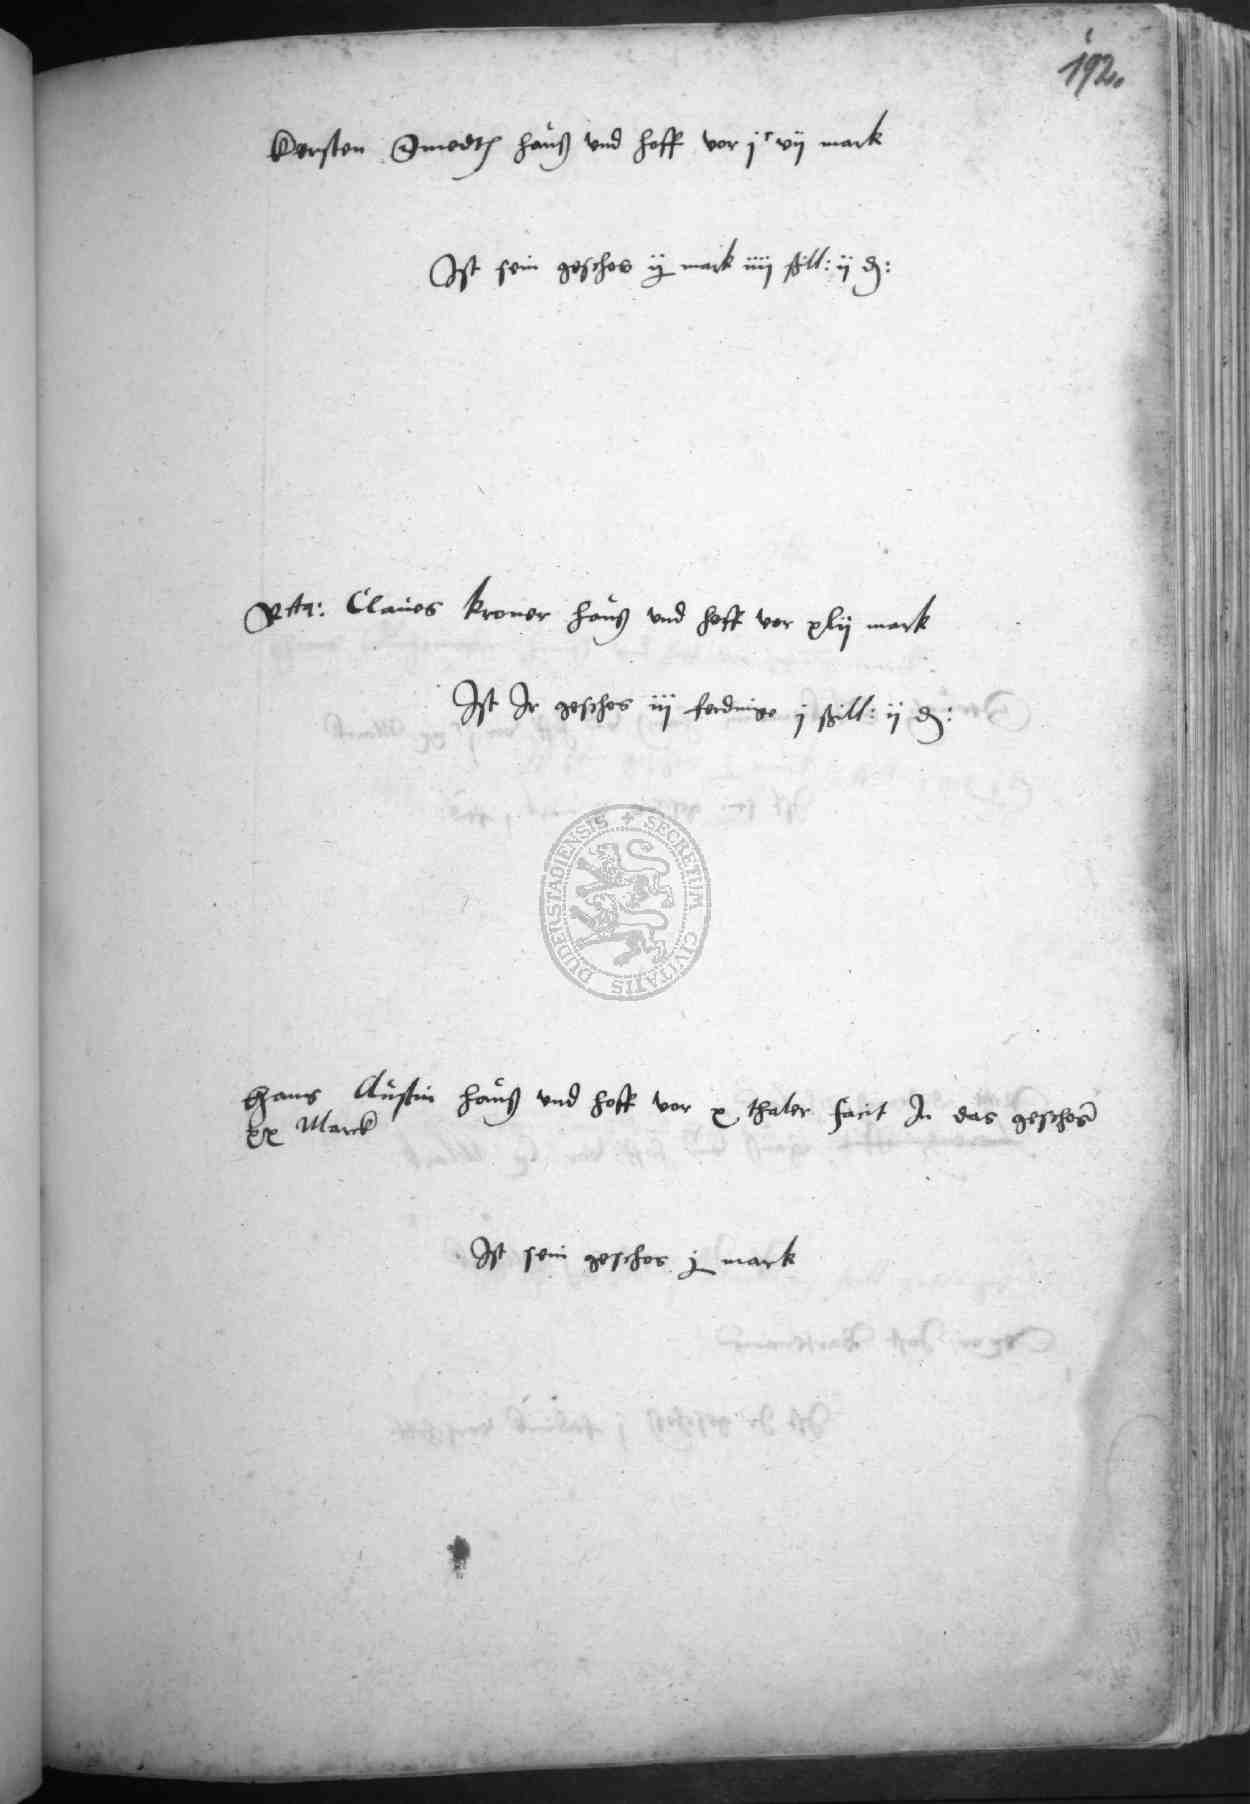 192.
Kersten Smedts hauß vnd hoff vor jc vij mark
Ist sein geschos ij mark iiij ßill: ij d:
Rcta: Claues kroner hauß vnd hoff vor xlij mark
Ist Ir geschos iij ferdinge j ßill: ij d:
SECRETUM CIVITATIS DUDERSTADIENSIS
Hans Austin hauß vnd hoff vor x thaler facit In das geschos
xx Marck
Ist sein geschos j mark